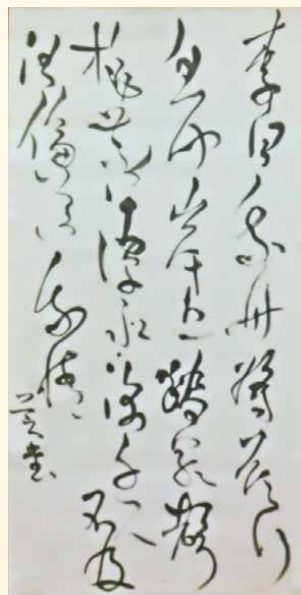 李白乘舟将欲行
忽聞岸上踏歌聲
桃花潭水深千尺不及
汪倫送我情